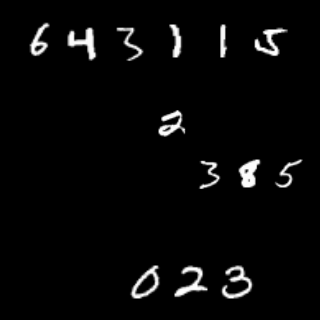 6 4 3 1 1 5
2
3 8 5
0 2 3